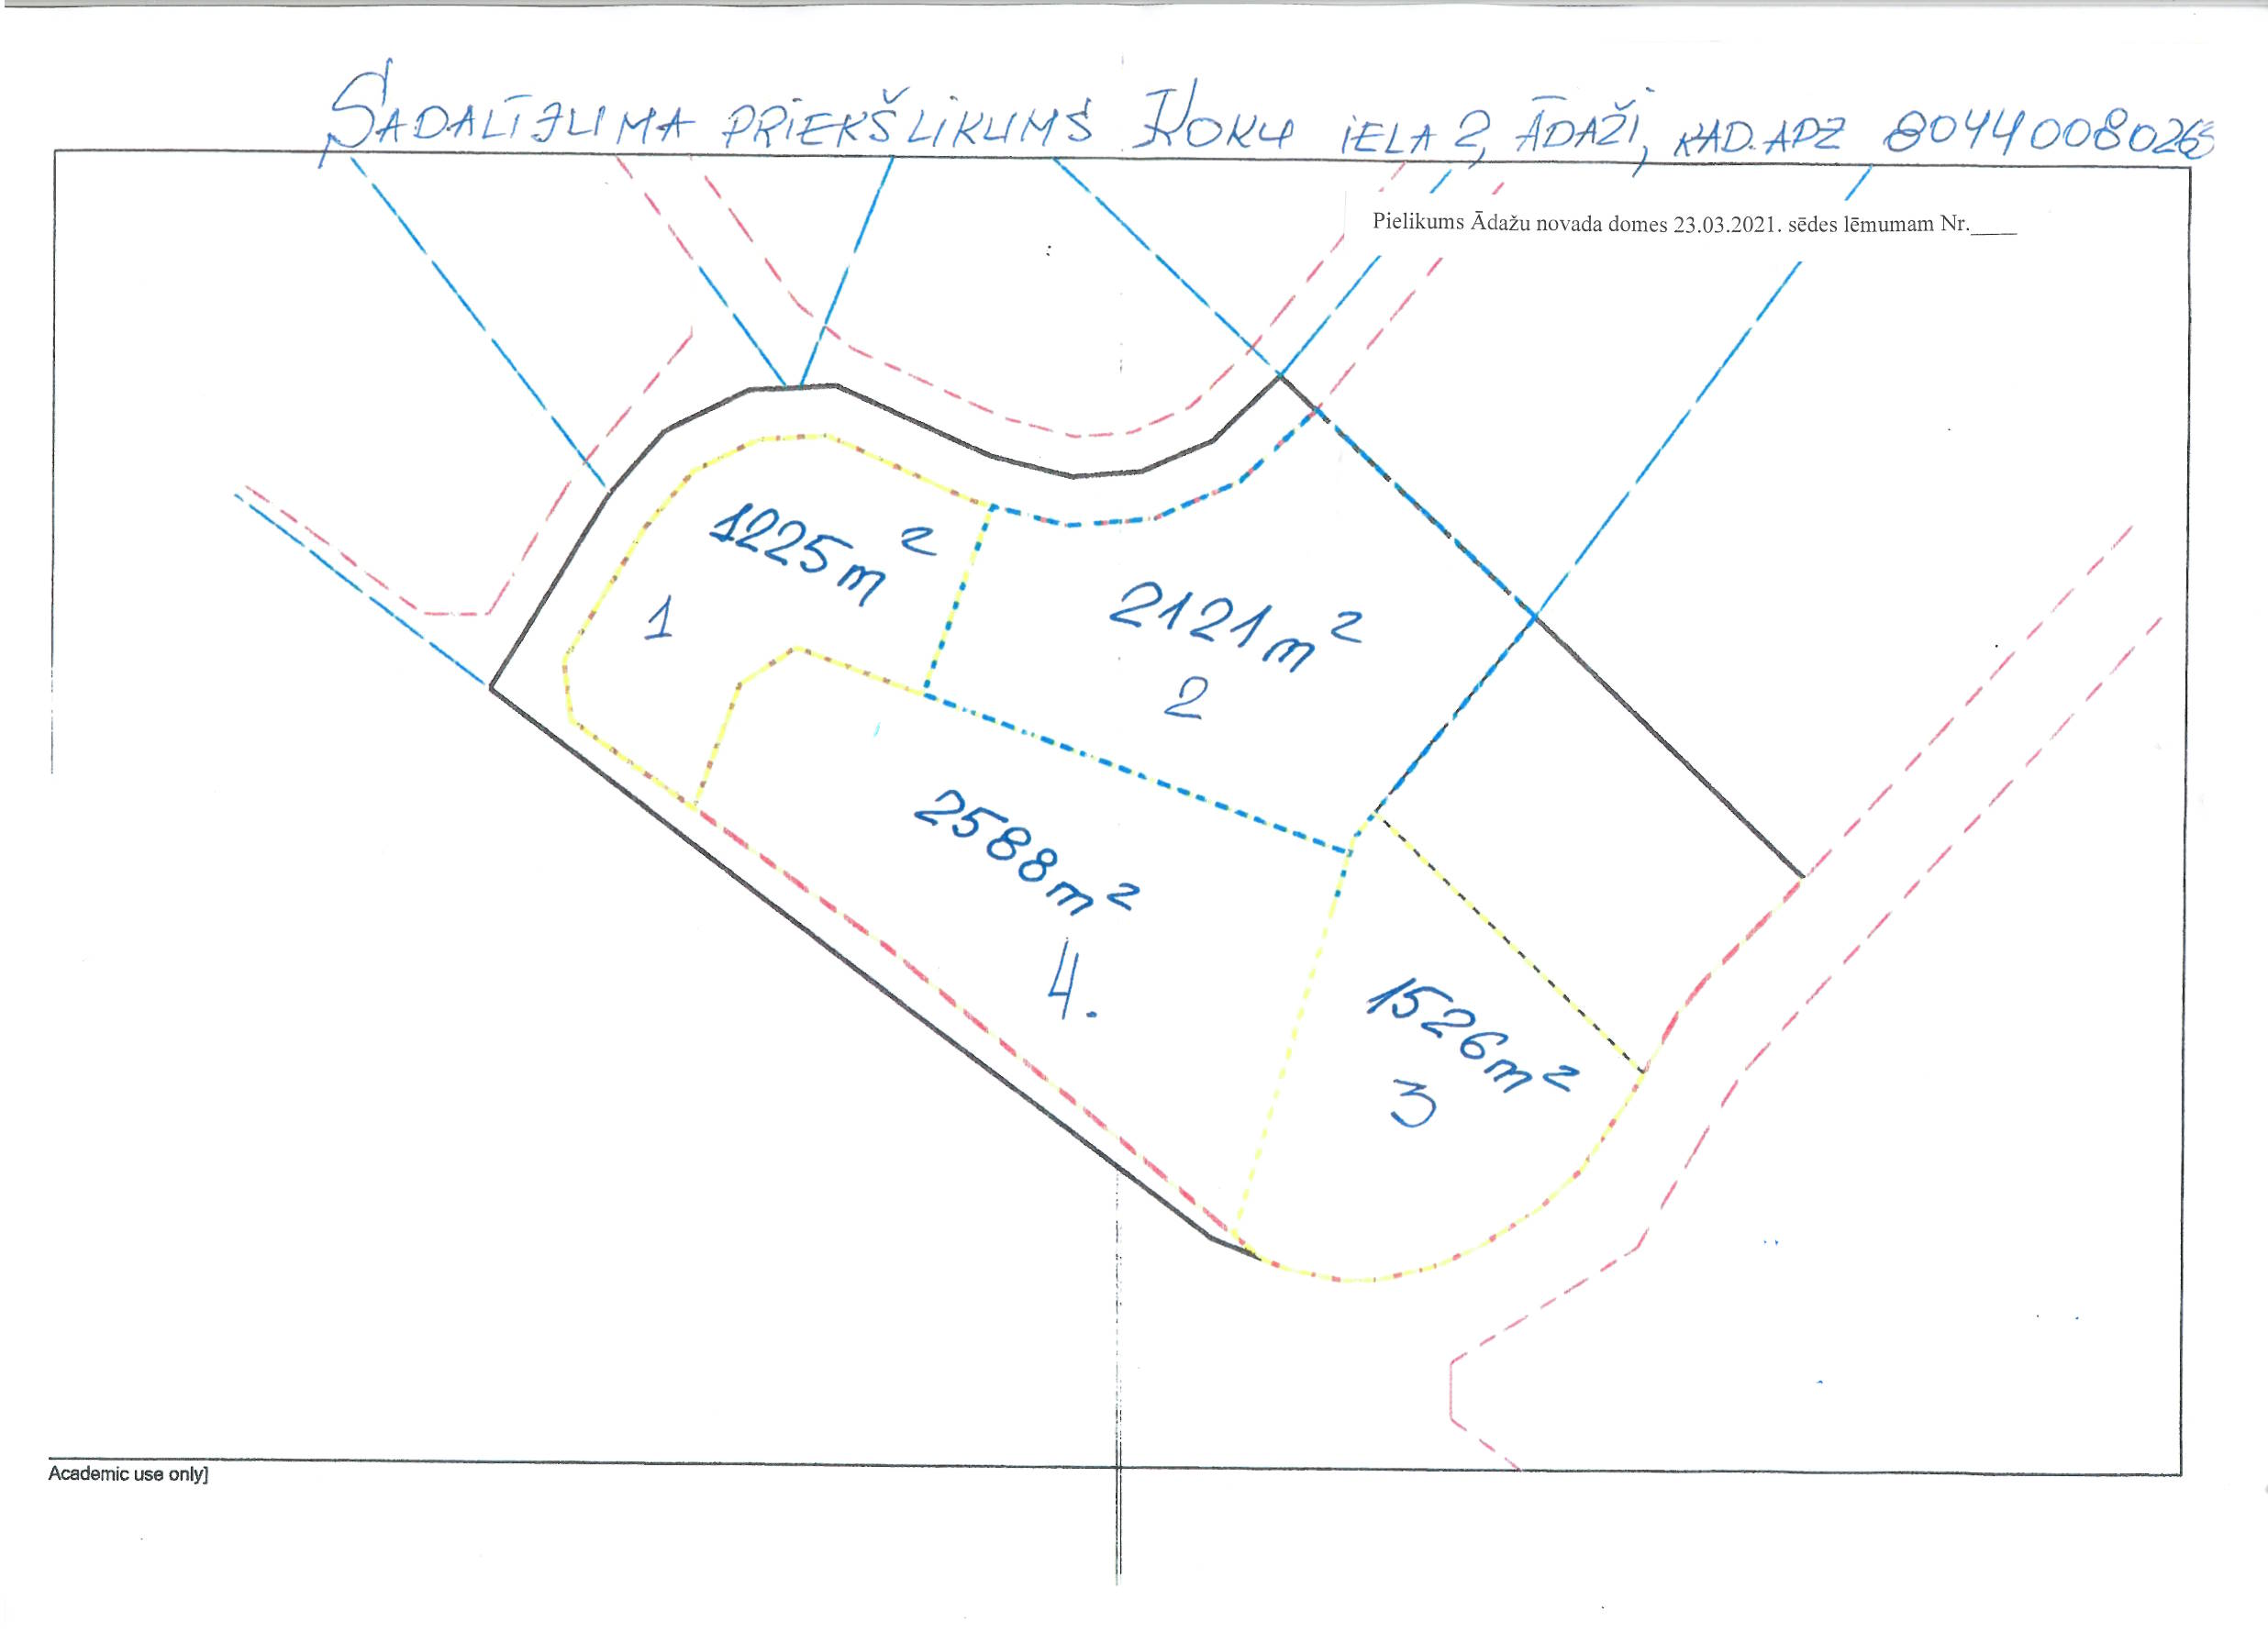 SADALĪJUMA PRIEKŠLIKUMS KOKU IELA 2, ĀDAŽI, KAD.APZ
Pielikums Ādažu novada domes 23.03.2021. sēdes lēmumam Nr.____
1225m²
1
2121m²
2
2588m²
4.
1526m²
3
Academic use only]